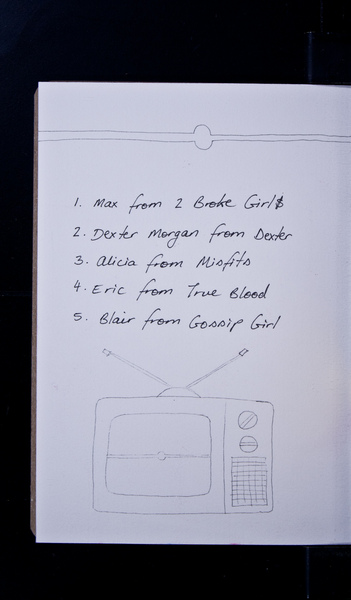 1. Max from 2 Broke Girl$
2. Dexter Morgan from Dexter
3. Alicia from Misfits
4. Eric from True Blood
5. Blair from Gossip Girl